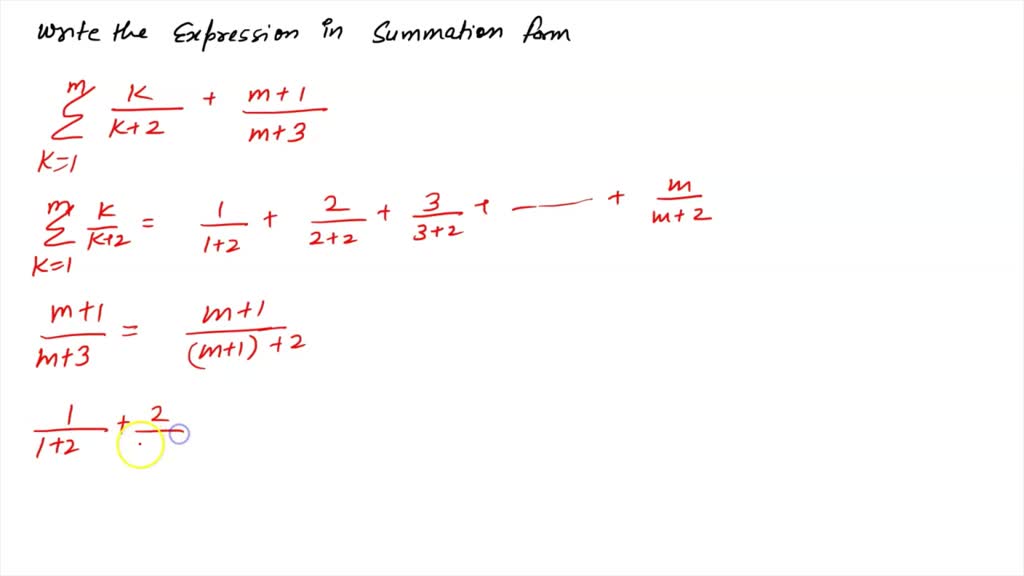 Write the Expression in Summation form
m∑k=1 K/K+2 + m+1/m+3
m∑k=1 K/K+2 = 1/1+2 + 2/2+2 + 3/3+2 + —— + m/m+2
m+1/m+3 = m+1/(m+1)+2
1/1+2 + 2/